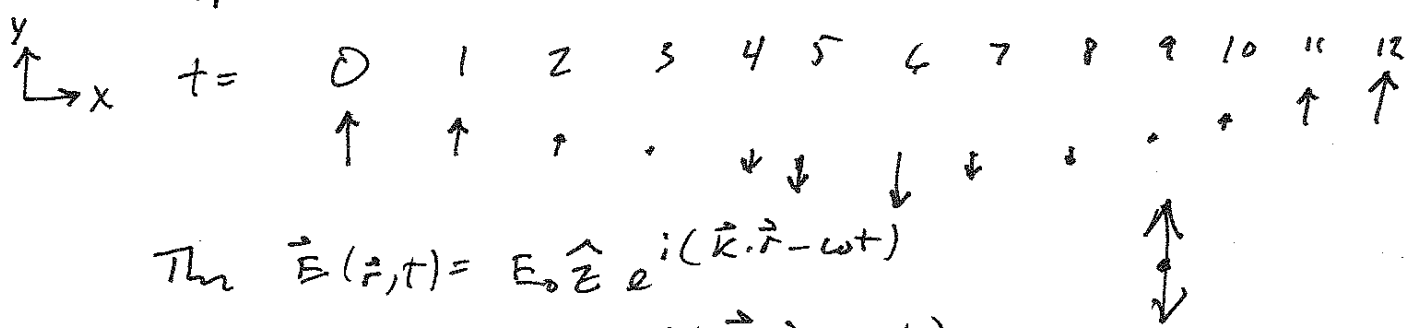 y
x t = 0 1 2 3 4 5 6 7 8 9 10 11 12
Then E⃗(r⃗,t) = E₀ ẑ e^{i(k⃗·r⃗ - ωt)}